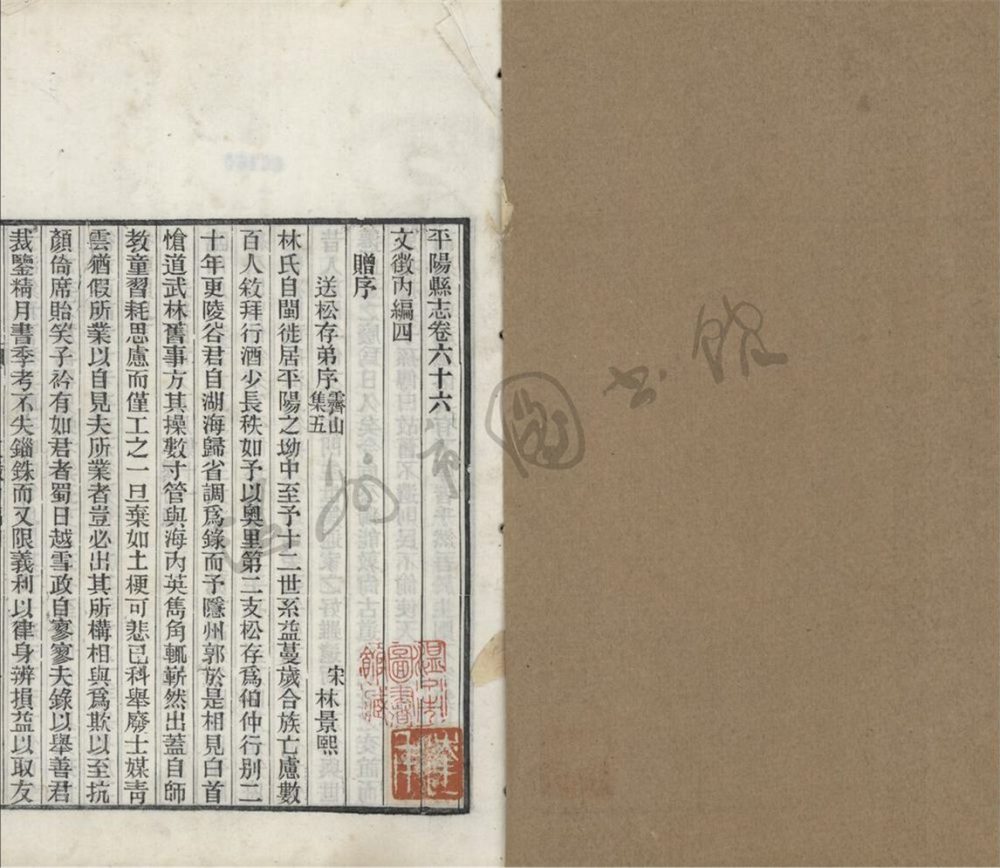 平陽縣志卷六十六
文徵內編四
贈序
送松存弟序霽山集五
宋林景熙
林氏自閩徙居平陽之坳中至予十二世系益蔓歲合族亡慮數
百人敘拜行酒少長秩如予以奧里第二支松存爲伯仲行别二
十年更陵谷君自湖海歸省調爲錄而予隱州郭於是相見白首
愴道武林舊事方其操數寸管與海内英雋角輒嶄然出蓋自師
教童習耗思慮而僅工之一旦棄如土梗可悲已科舉廢士媒青
雲猶假所業以自見夫所業者豈必出其所構相與爲欺以至抗
顏倚席貽笑子衿有如君者蜀日越雪政自寥寥夫錄以舉善君
裁鑒精月書季考不失錙銖而又限義利以律身辨損益以取友
溫州市圖書館
溫州市
圖書
館藏